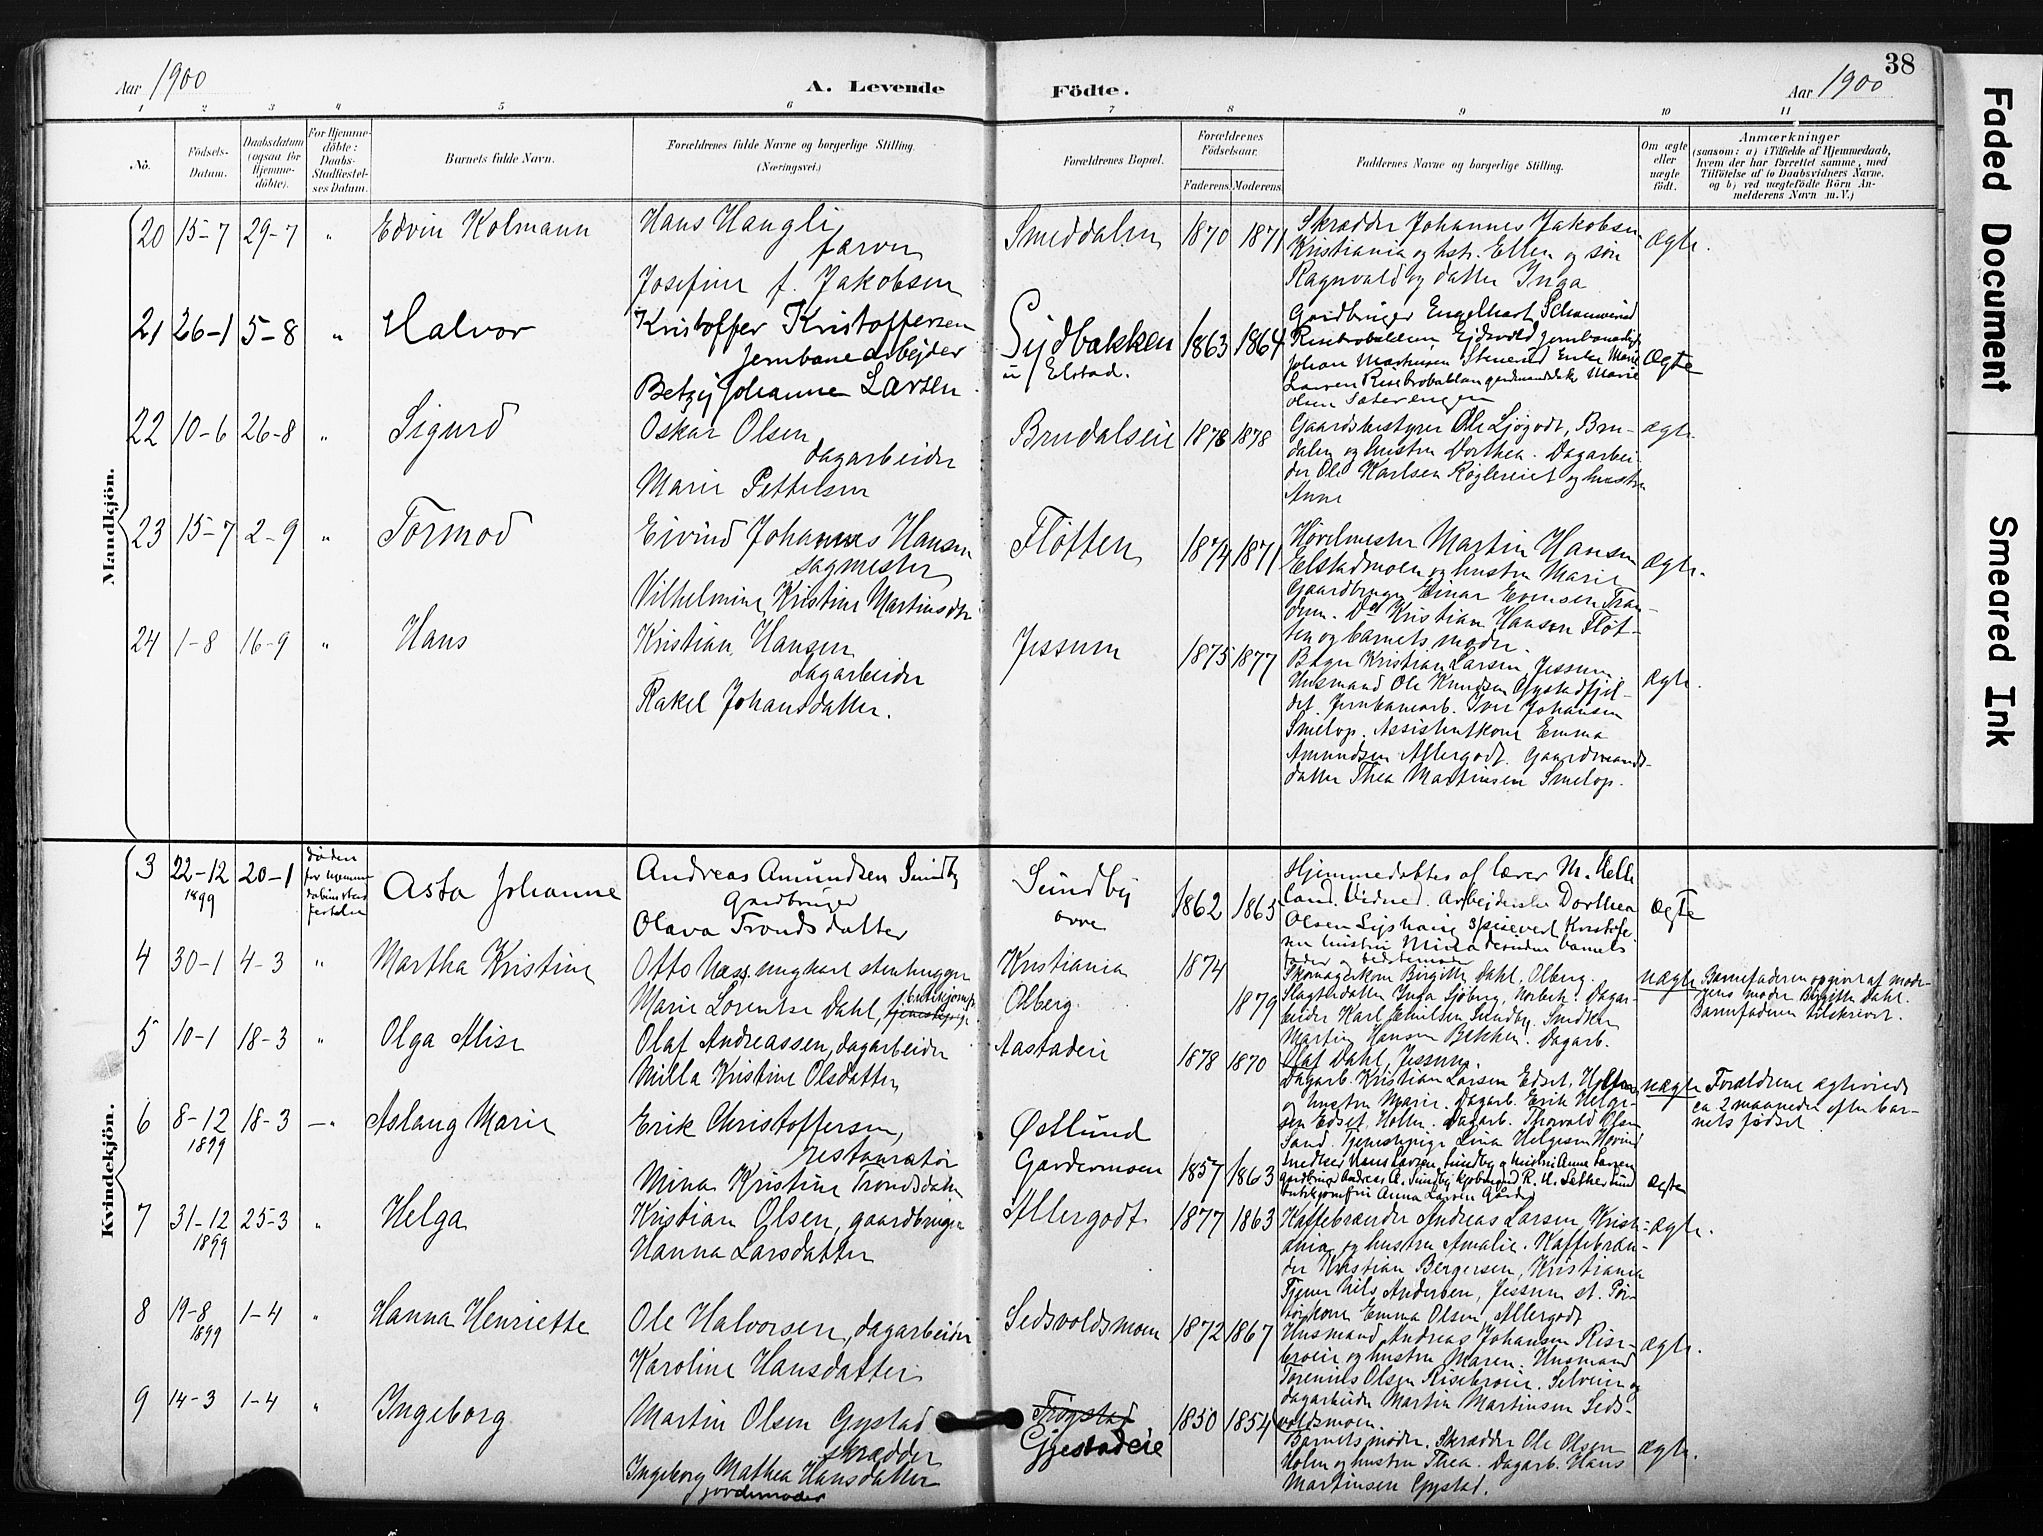 Aar 1900
A. Levende
Födte.
Aar 1900
38
1 2 3 4 5 6 7 8 9 10 11
No.
Födsels-Datum.
Daabsdatum (ogsaa for Hjemme-döbte).
For Hjemme-döbte: Daabs-Stadfæstel-ses Datum.
Barnets fulde Navn.
Forældrenes fulde Navne og borgerlige Stilling. (Næringsvei.)
Forældrenes Bopæl.
Forældrenes Födselsaar.
Faderens. Moderens.
Faddernes Navne og borgerlige Stilling.
Om ægte eller uægte födt.
Anmærkninger
(saasom: a) i Tilfælde af Hjemmedaab, hvem der har forrettet samme, med Tilföielse af to Daabsvidners Navne, og b) ved uægtefödte Börn An-melderens Navn m. V.)
Mandkjön.
20 15-7 29-7 „ Edvin Kolmann
Hans Haugli
farver
Josefine f. Jakobsen
Smeddalen 1870 1871
Skrædder Johannes Jakobsen
Kristiania og hst. Ellen og søn
Ragnvald og datter Inga
Ægte.
21 26-1 5-8 „ Halvor
Kristoffer Kristoffersen
Jernbanearbejder
Betzy Johanne Larsen
Sydbakken
u/ Elstad.
1863 1864
Gaardbruger Engelhart
Johan Mathisen Stenerud Enke Marie
Larsen
Olsen Sæterengen
Ægte
22 10-6 26-8 „ Sigurd
Oskar Olsen
dagarbeider
Marie Pettersen
Brudalseie 1878 1878
Gaardsbestyrer Ole Ljøgodt, Bru-
dalen og hustru Dorthea. Dagarbei-
der Ole Karlsen Røglereiet og hustru
Anne
ægte.
23 15-7 2-9 „ Tormod
Eivind Johannes Hansen
sagmester
Vilhelmine Kristine Martinsdtr
Fløtten 1874 1871
Høvelmester Martin Hansen
Elstadmoen og hustru Marie
Gaardbruger Einar Evensen Tran-
dum. Do Kristian Hansen Fløt-
ten og barnets moder.
Ægte.
24 1-8 16-9 „ Hans
Kristian Hansen
dagarbeider
Rakel Johansdatter.
Jessum 1875 1877
Bager Kristian Larsen Jessum.
Husmand Ole Knudsen Gystadfjel-
det. Jernbanearb. Iver Johansen
Smelop. Assistentkone Emma
Amundsen Allergodt. Gaardmands-
datter Thea Martinsen Smelop.
Ægte.
Kvindekjön.
3 22-12 1899 20-1
Asta Johanne
Andreas Amundsen Sundby
Gaardbruger
Olava Tronds datter
Sundby
øvre
1862 1865
Hjemmedøbtes af lærer M. Helle
land. Vidned. Arbejderske Dorthea
Olsen
hustru Mina desuden barnets
fader og bedstemoder
Ægte
4 30-1 4-3 „ Martha Kristine
Otto Næss, ungkarl stenhugger
Marie Lorentse Dahl, butikjomfr. tjenestepige
Kristiania 1874
Olberg. 1879
Skomagerkone Birgitte Dahl, Olberg.
Slagterdatter Inga Sjøberg, Norbek. Dagar-
beider Karl Emilsen Sundby. Smedken
Martin Hansen Bekken. Dagarb.
Olaf Dahl, Jessum.
uægte
Barnefaderen opgivet af mode-
rens moder Birgitte Dahl.
Barnefaderen tilskrevet.
5 10-1 18-3 „ Olga Alise
Olaf Andreassen, dagarbeider
Milla Kristine Olsdatter
Aastadeie 1878 1870
Dagarb. Kristian Larsen Edset, Holter
og hustru Marie. Dagarb. Erik Helge-
sen Edset, Holter. Dagarb. Thorvald Olsen
Sand. Tjenestepige Lina Helgesen Hovind
uægte
Forældrene ægteviede
ca 2 maaneder efter bar-
nets fødsel
6 8-12 1899 18-3 — „ Aslaug Marie
Erik Christoffersen,
restauratør
Mina Kristine Trondsdatter
Østlund
Gardermoen 1857 1863
Smedsed Hans Larsen, Sundby og hustru Anne Larsen
gardbruger Andreas A. Sundby kjøbmand R. A. Sæther Lund
butikjomfru Anna Larsen
ægte
7 31-12 1899 25-3 „ Helga
Kristian Olsen, gaardbruger
Hanna Larsdatter
Allergodt 1877 1863
Kaffebrænder Andreas Larsen, Krist-
ania og hustru Amalie. Kaffebræn-
der Kristian Bergersen, Kristiania
Tjener Nils Andersen, Jessum st. Por-
tørkone Emma Olsen, Allergodt
ægte.
8 19-8 1899 1-4 „ Hanna Henriette
Ole Halvorsen, dagarbeider
Karoline Hansdatter
Sedsvoldsmoen 1872 1867
Husmand Andreas Johansen Rise-
broeie og hustru Maren. Husmand
Torenius Olsen Risebroeie. Selveier og
dagarbeider Martin Martinsen Seds-
voldsmoen.
ægte.
9 14-3 1-4 „ Ingeborg
Martin Olsen Gystad
skrædder
Ingeborg Mathea Hansdatter
jordemoder
Trøgstad
Gjestadeie
1850 1854
Barnets moder. Skrædder Ole Olsen
Holm og hustru Thea. Dagarb. Hans
Martinsen Gystad.
ægte.
Faded Document
Smeared Ink